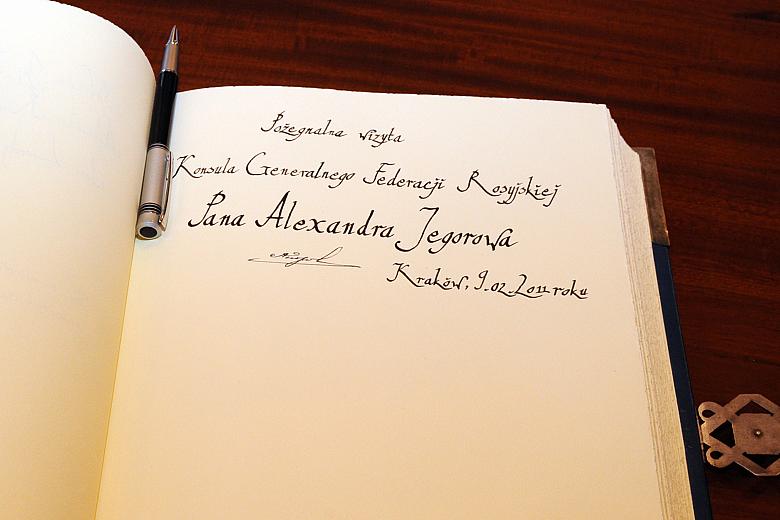 Pożegnalna wizyta
Konsula Generalnego Federacji Rosyjskiej
Pana Alexandra Jegorowa
Kraków, 9.02.2011 roku